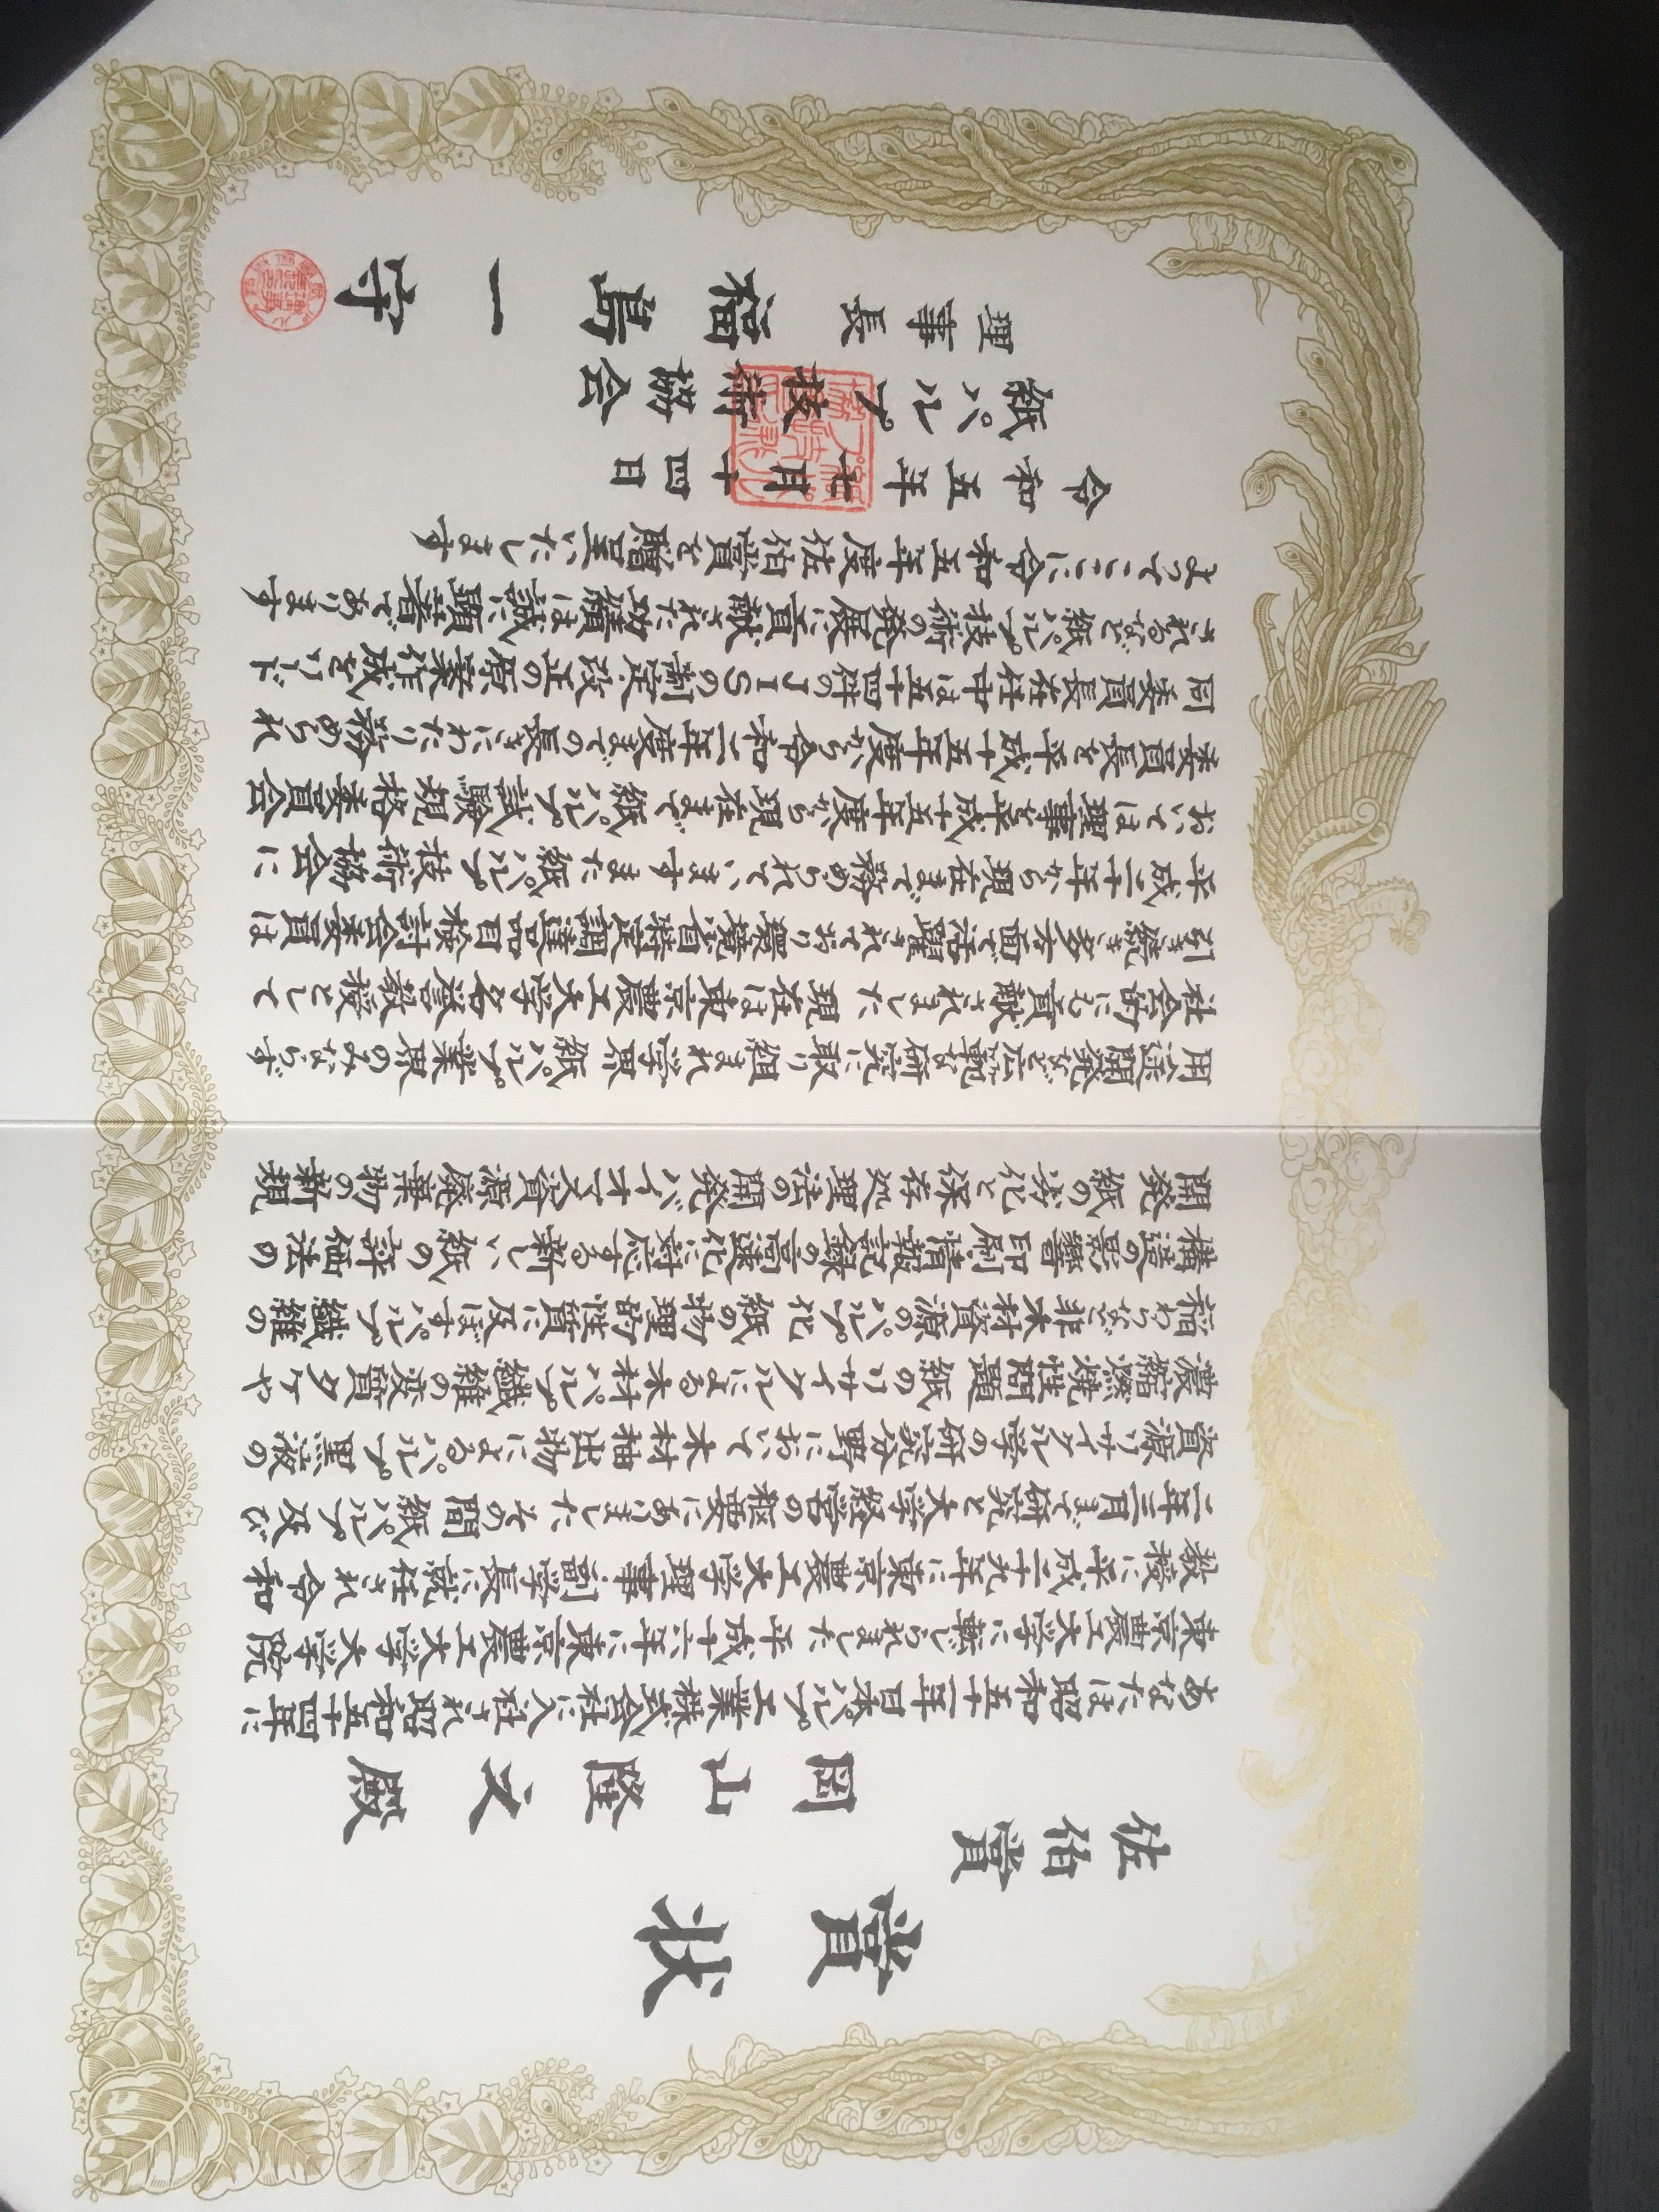 賞状
佐伯賞
岡山隆之殿
あなたは昭和五十一年日本パルプ工業株式会社に入社され昭和五十四年に
東京農工大学に転じられました平成十六年に東京農工大学大学院
教授に平成二十九年に東京農工大学理事・副学長に就任され令和
二年三月まで研究と大学経営の枢要にありましたその間紙パルプ及び
資源リサイクル学の研究分野において木材抽出物によるパルプ黒液の
濃縮燃焼性問題紙のリサイクルによる木材パルプ繊維の変質タケや
稲わらなど非木材資源のパルプ化紙の物理的性質に及ぼすパルプ繊維の
構造の影響印刷情報記録の高速化に対応する新しい紙の評価法の
開発紙の劣化と保存処理法の開発バイオマス資源廃棄物の新規
用途開発など広範な研究に取り組まれ学界紙パルプ業界のみならず
社会的にも貢献されました現在は東京農工大学名誉教授として
引き続き多方面で活躍されており環境省特定調達品目検討会委員は
平成二十年から現在まで務められていますまた紙パルプ技術協会に
おいては理事を平成十五年度から現在まで紙パルプ試験規格委員会
委員長を平成十五年度から令和二年度までの長きにわたり務められ
同委員長在任中は五十四件のJISの制定改正の原案作成をリード
されるなど紙パルプ技術の発展に貢献された功績は誠に顕著であります
よってここに令和五年度佐伯賞を贈呈いたします
令和五年七月十四日
紙パルプ技術協会
理事長 福島一守